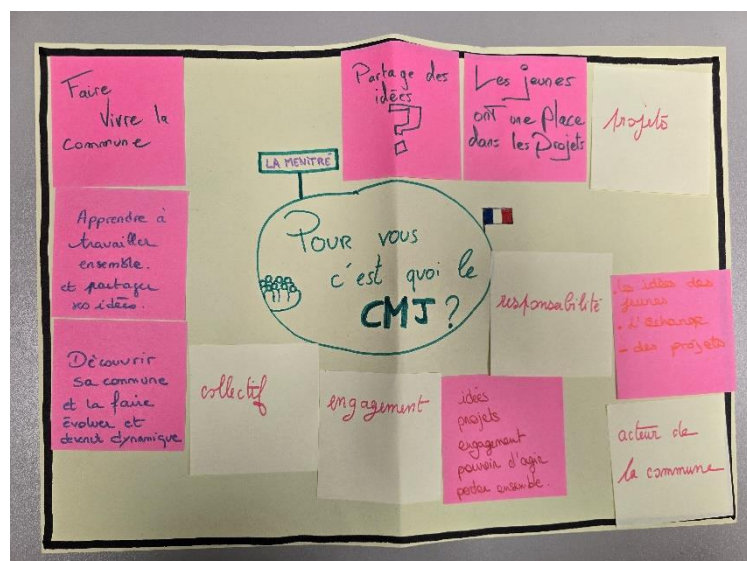 Faire
Vivre la
commune
Partage des
idées
?
Les jeunes
ont une Place
dans les Projets
projets
LA MENITRÉ
POUR VOUS
c'est quoi le
CMJ ?
Apprendre à
travailler
ensemble.
et partager
nos idées.
responsabilité
. les idées des
jeunes
. L'échange
- des projets
Découvrir
sa commune
et la faire
évoluer et
devenir dynamique
collectif
engagement
idées
projets
engagement
pouvoir d'agir
penser ensemble.
acteur de
la commune